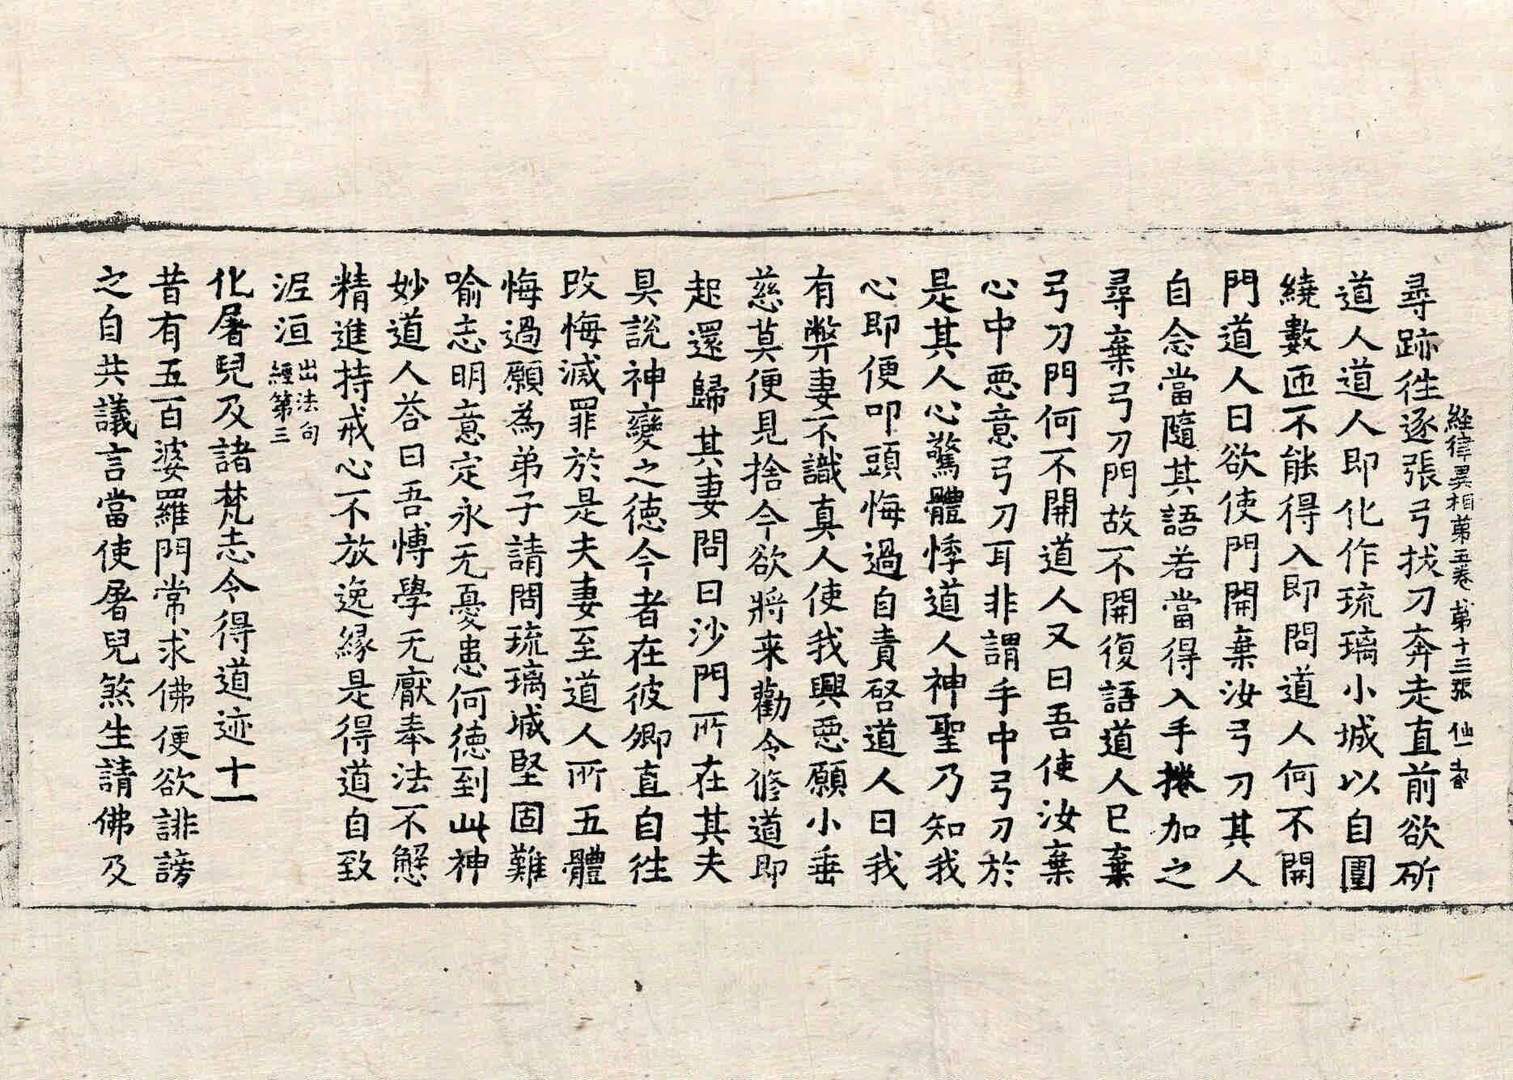 經律異相第五卷 第十三張 仙
尋跡徃逐張弓拔刀奔走直前欲斫
道人道人即化作琉璃小城以自圍
繞數匝不能得入即問道人何不開
門道人曰欲使門開棄汝弓刀其人
自念當隨其語若當得入手捲加之
尋棄弓刀門故不開復語道人已棄
弓刀門何不開道人又曰吾使汝棄
心中惡意弓刀耳非謂手中弓刀於
是其人心驚體悸道人神聖乃知我
心即便叩頭悔過自責啓道人曰我
有弊妻不識真人使我興惡願小垂
慈莫便見捨今欲將来勸令修道即
起還歸其妻問曰沙門所在其夫
具說神變之德今者在彼卿直自徃
改悔滅罪於是夫妻至道人所五體
悔過願為弟子請問琉璃城堅固難
喻志明意定永无憂患何德到此神
妙道人荅曰吾博學无猒奉法不懈
精進持戒心不放逸緣是得道自致
泥洹出法句經第三
化屠兒及諸梵志令得道迹十一
昔有五百婆羅門常求佛便欲誹謗
之自共議言當使屠兒煞生請佛及